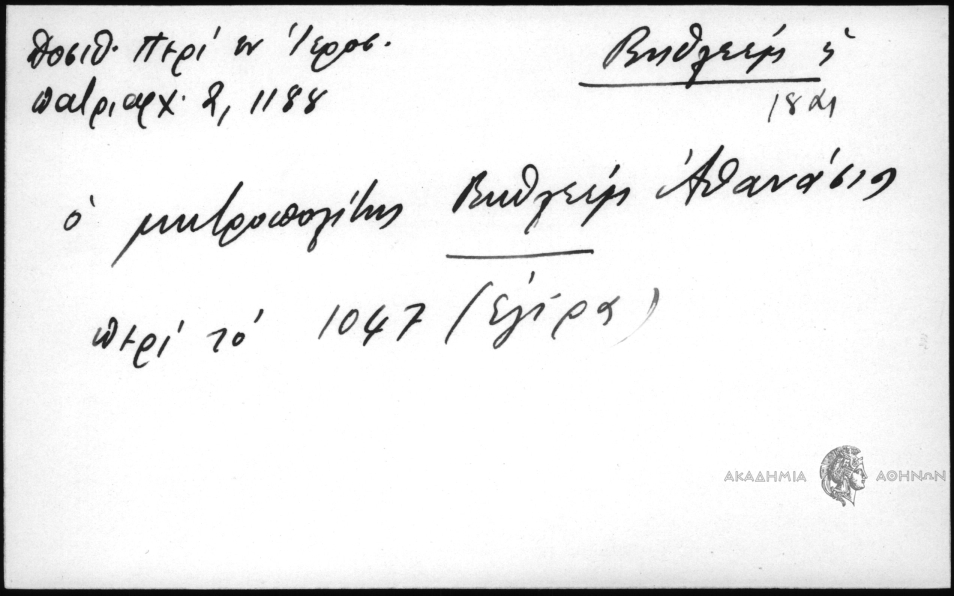 Δοσιθ. Περί εν Ἱεροσ.
πατριαρχ. 2, 1188
Βηθλεέμ ἡ
1821
ὁ μητροπολίτης Βηθλεέμ Ἀθανάσιος
περί τό 1047 (Ἐγίρα)
ΑΚΑΔΗΜΙΑ ΑΘΗΝΩΝ